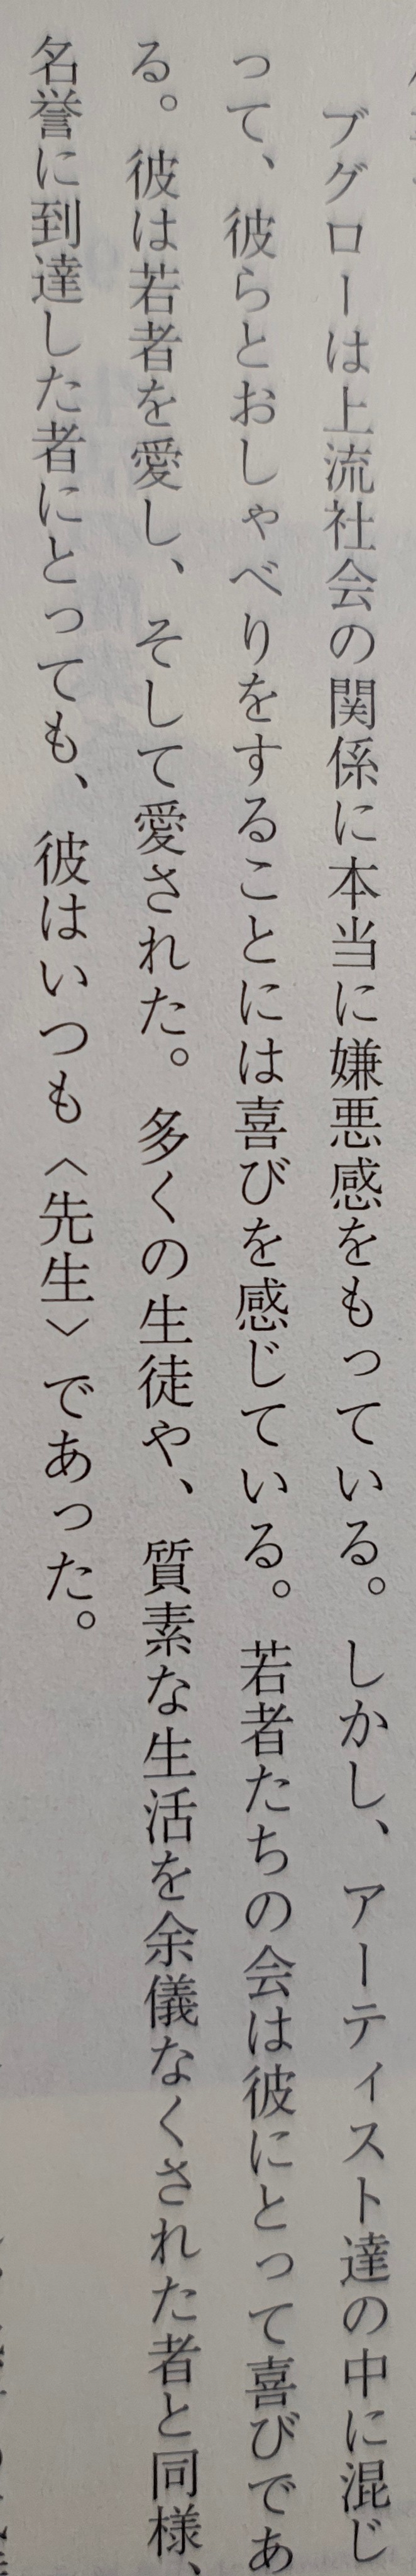 ブグローは上流社会の関係に本当に嫌悪感をもっている。しかし、アーティスト達の中に混じ
って、彼らとおしゃべりをすることには喜びを感じている。若者たちの会は彼にとって喜びであ
る。彼は若者を愛し、そして愛された。多くの生徒や、質素な生活を余儀なくされた者と同様、
名誉に到達した者にとっても、彼はいつも〈先生〉であった。